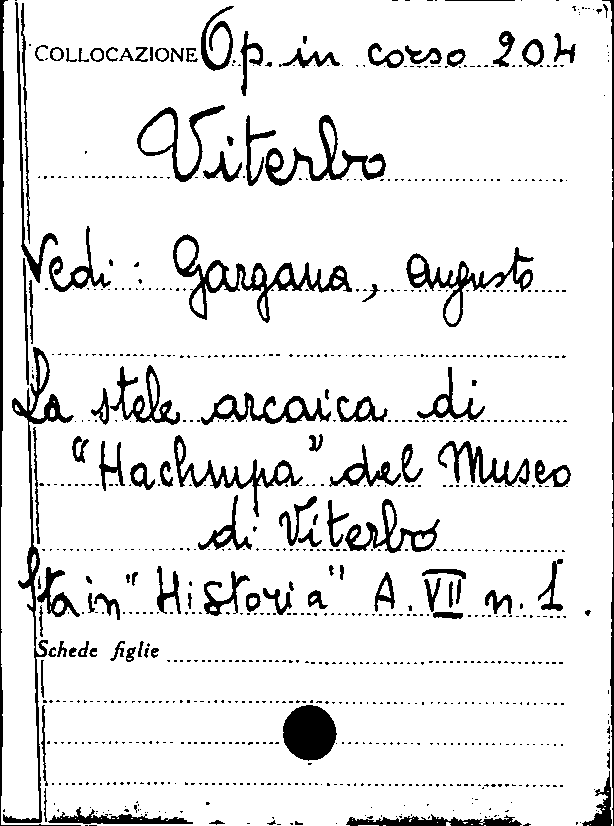 COLLOCAZIONE Op. in corso 204
Viterbo
Vedi: Gargana, Augusto
La stele arcaica di
"Hachnpa" del Museo
di Viterbo
Sta in "Historia" A. VII n. 1.
Schede figlie